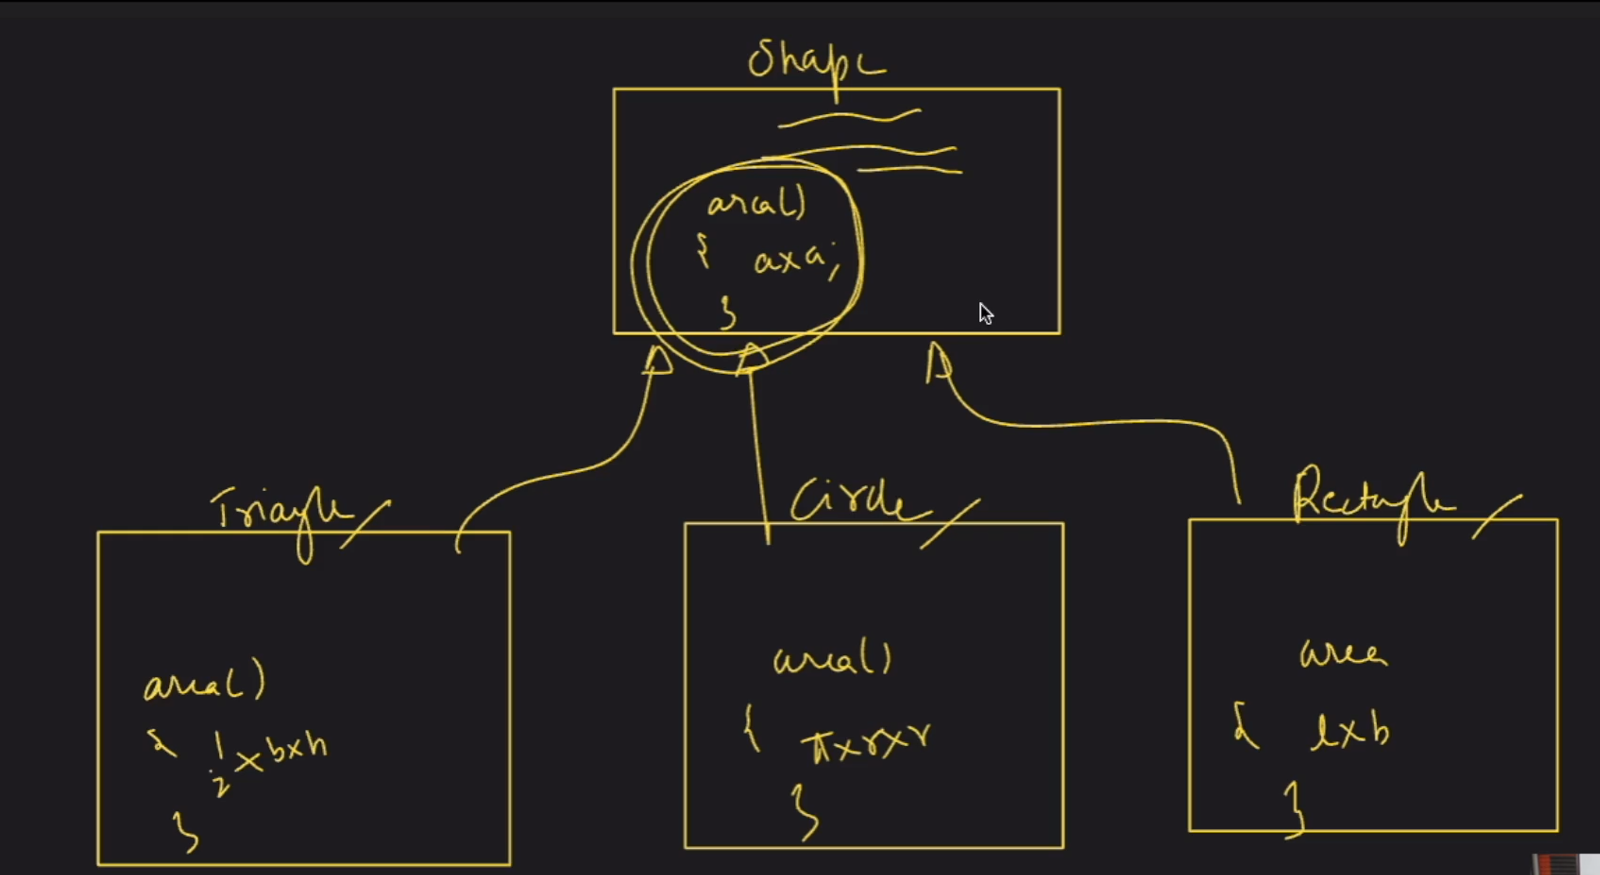 Shape
area()
{ axa;
}
Triangle
area()
{ 1/2 x b x h
}
Circle
area()
{ π x r x r
}
Rectangle
area
{ l x b
}